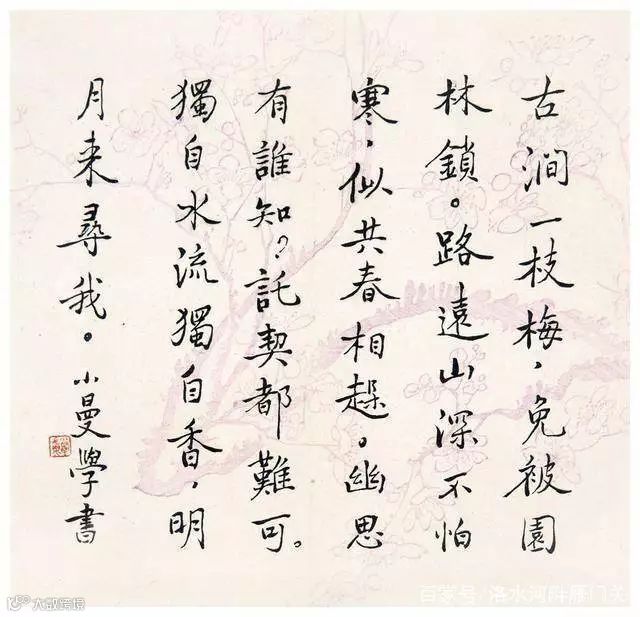 古澗一枝梅，免被園
林鎖。路遠山深不怕
寒，似共春相趓。幽思
有誰知？託契都難可。
獨自水流獨自香，明
月来尋我。小曼學書
百家号/洛水河畔雁门关
大数跨境